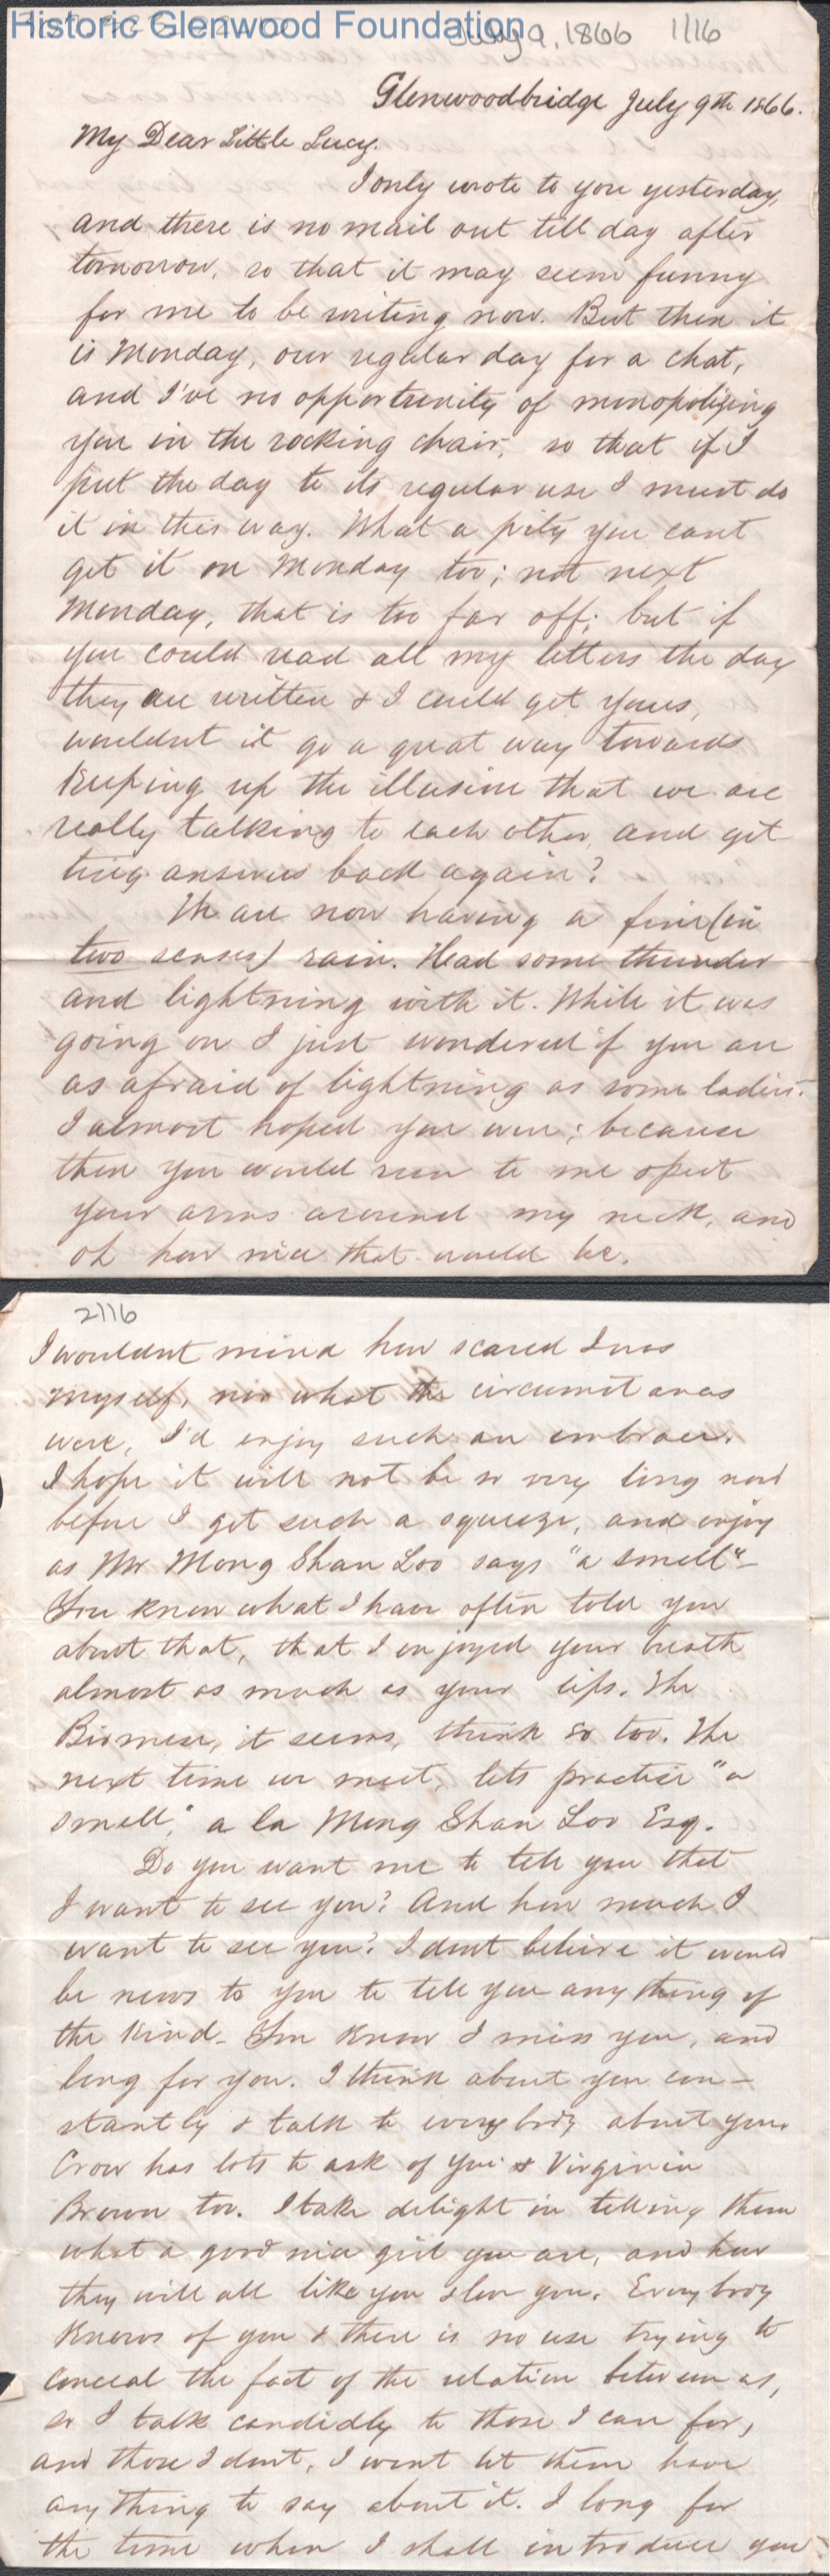 Historic Glenwood Foundation
July 9, 1866 1/16
Glenwoodbridge July 9th 1866.
My Dear Little Lucy.
I only wrote to you yesterday,
and there is no mail out till day after
tomorrow, so that it may seem funny
for me to be writing now. But then it
is Monday, our regular day for a chat,
and I've no opportunity of monopolizing
you in the rocking chair, so that if I
put the day to its regular use I must do
it in this way. What a pity you cant
get it on Monday too; not next
Monday, that is too far off; but if
you could read all my letters the day
they are written & I could get yours,
wouldnt it go a great way towards
keeping up the illusion that we are
really talking to each other and get
ting answers back again?
We are now having a fine (in
two senses) rain. Had some thunder
and lightning with it. While it was
going on I just wondered if you are
as afraid of lightning as some ladies.
I almost hoped you were; because
then you would run to me & put
your arms around my neck, and
oh how nice that would be.
2/16
I wouldnt mind how scared I was
myself, nor what the circumstances
were, I'd enjoy such an embrace.
I hope it will not be so very long now
before I get such a squeeze, and enjoy
as Mr Mong Shan Loo says "a smell"-
You know what I have often told you
about that, that I enjoyed your breath
almost as much as your lips. The
Birmese, it seems, think so too. The
next time we meet, lets practise "a
smell," a la Mong Shan Loo Esq.
Do you want me to tell you that
I want to see you? And how much I
want to see you? I dont believe it would
be news to you to tell you any thing of
the kind- You know I miss you, and
long for you. I think about you con-
stantly & talk to every body about you.
Crow has lots to ask of you & Virginia
Brown too. I take delight in telling them
what a good nice girl you are, and how
they will all like you & love you. Every body
knows of you & there is no use trying to
conceal the fact of the relation between us,
so I talk candidly to those I care for,
and those I dont, I wont let them have
any thing to say about it. I long for
the time when I shall introduce you